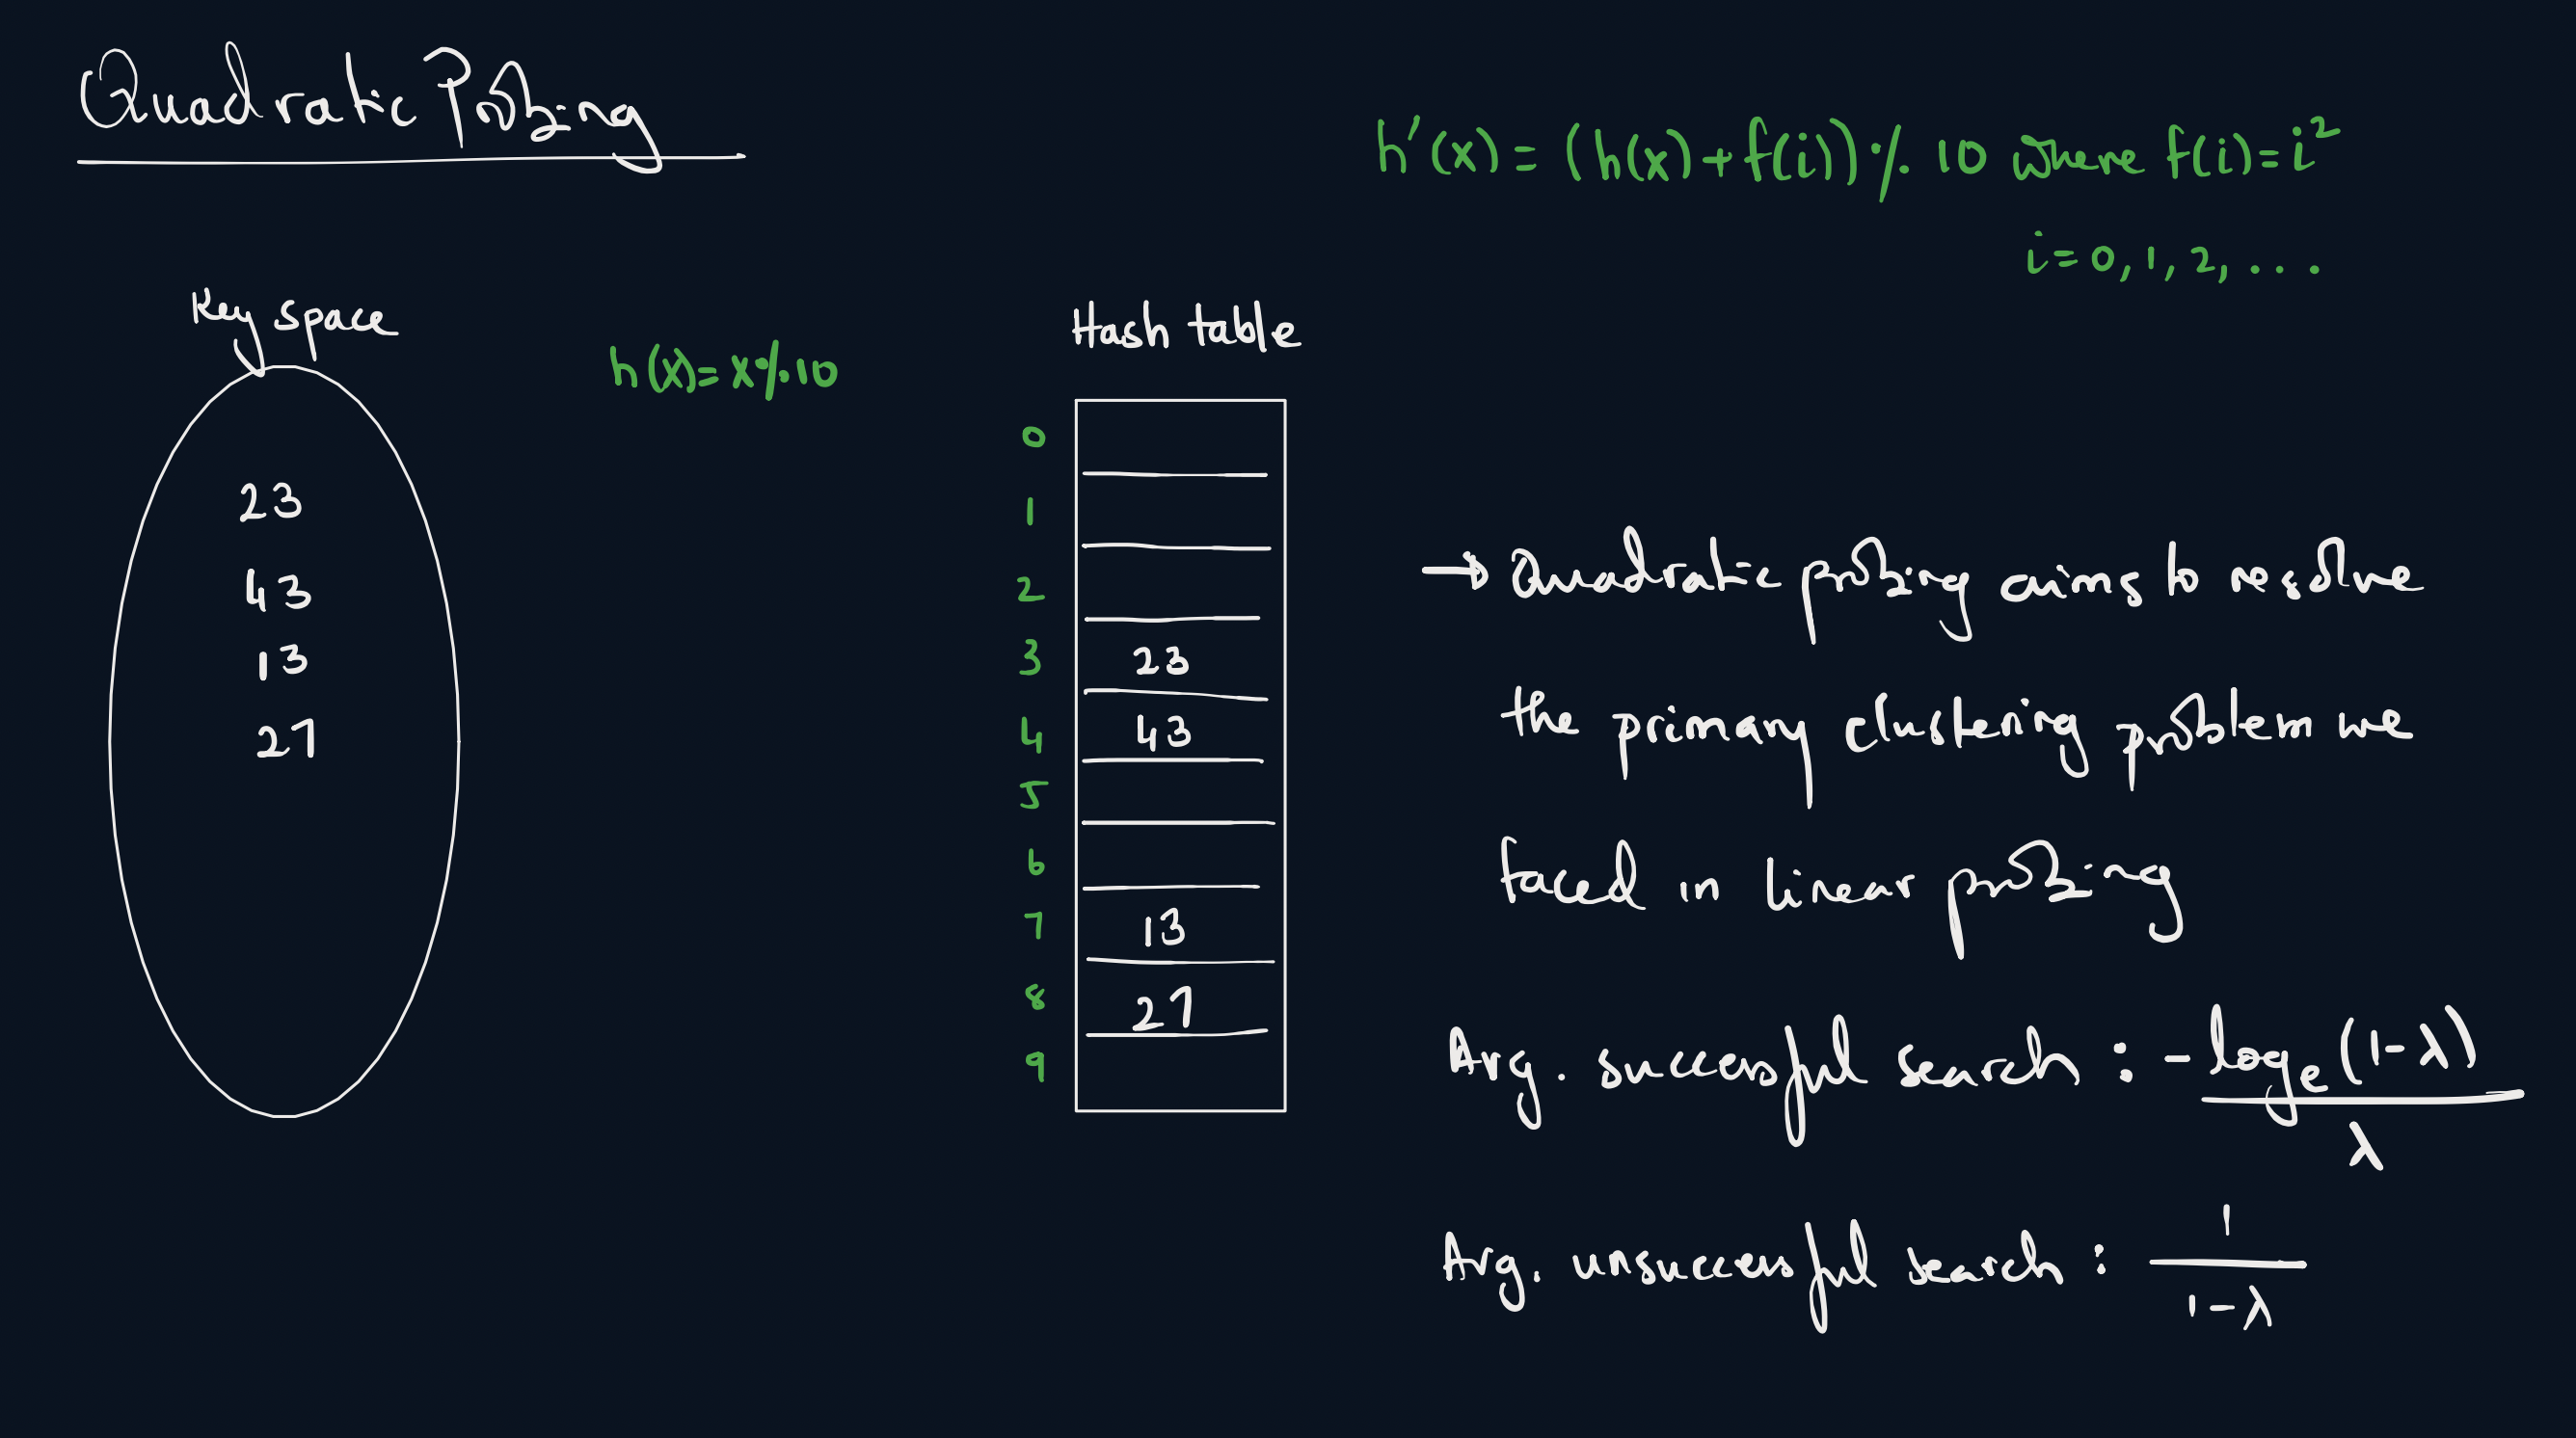 Quadratic Probing
h'(x) = (h(x) + f(i)) % 10 where f(i) = i²
i = 0, 1, 2, ...
Key space
h(x) = x % 10
Hash table
23
43
13
27
0
1
2
3 23
4 43
5
6
7 13
8 27
9
→ Quadratic probing aims to resolve
the primary clustering problem we
faced in linear probing
Avg. successful search : -logₑ(1-λ) / λ
Avg. unsuccessful search : 1 / 1-λ